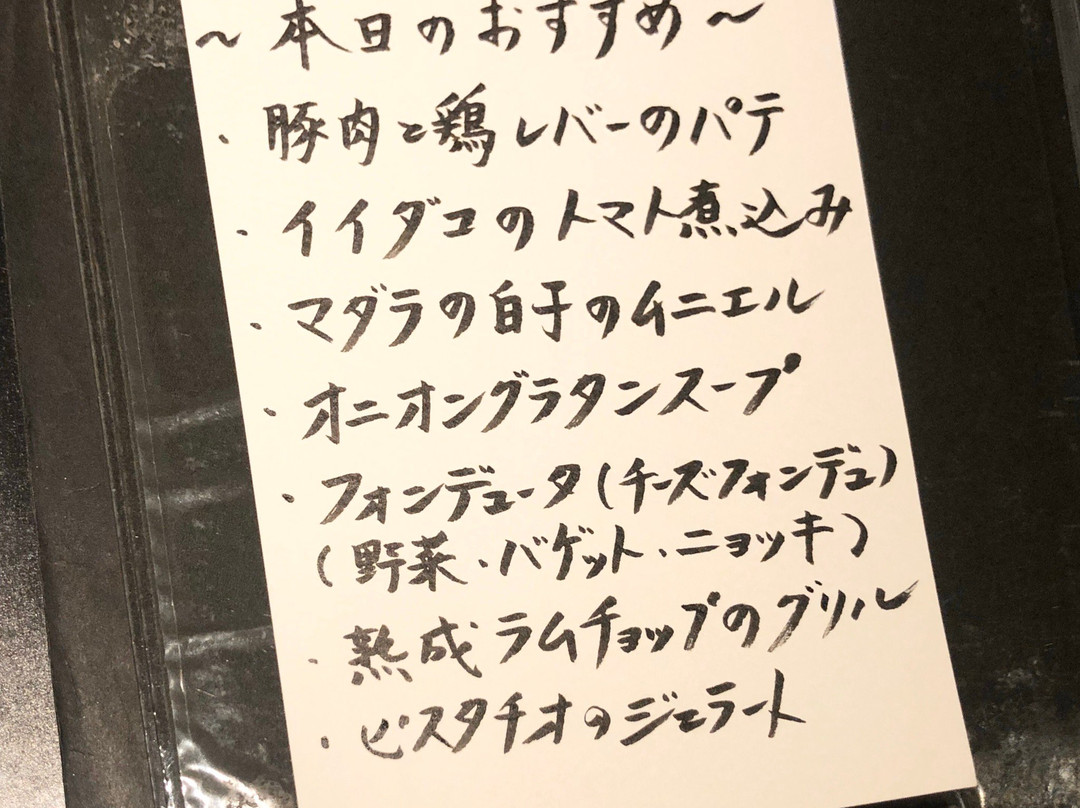 ～本日のおすすめ～
・豚肉と鶏レバーのパテ
・イイダコのトマト煮込み
・マダラの白子のムニエル
・オニオングラタンスープ
・フォンデュータ(チーズフォンデュ)
(野菜・バゲット・ニョッキ)
・熟成ラムチョップのグリル
・ピスタチオのジェラート